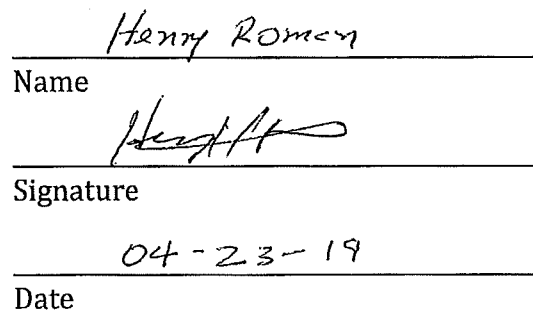 Henry Roman
Name
Signature
04-23-19
Date